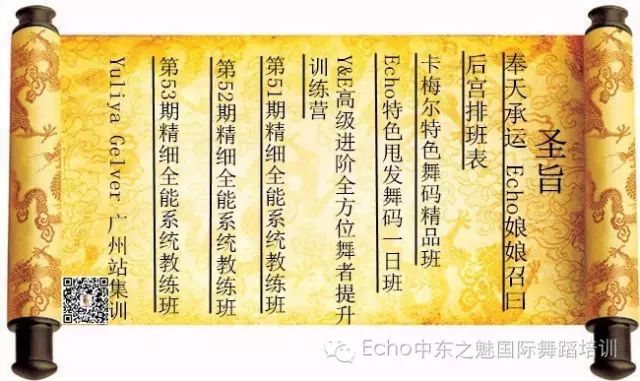 圣旨
奉天承运 Echo娘娘召曰
后宫排班表
卡梅尔特色舞码精品班
Echo特色甩发舞码一日班
Y&E高级进阶全方位舞者提升
训练营
第51期精细全能系统教练班
第52期精细全能系统教练班
第53期精细全能系统教练班
Yuliya Gelver 广州站集训
Echo中东之魅国际舞蹈培训